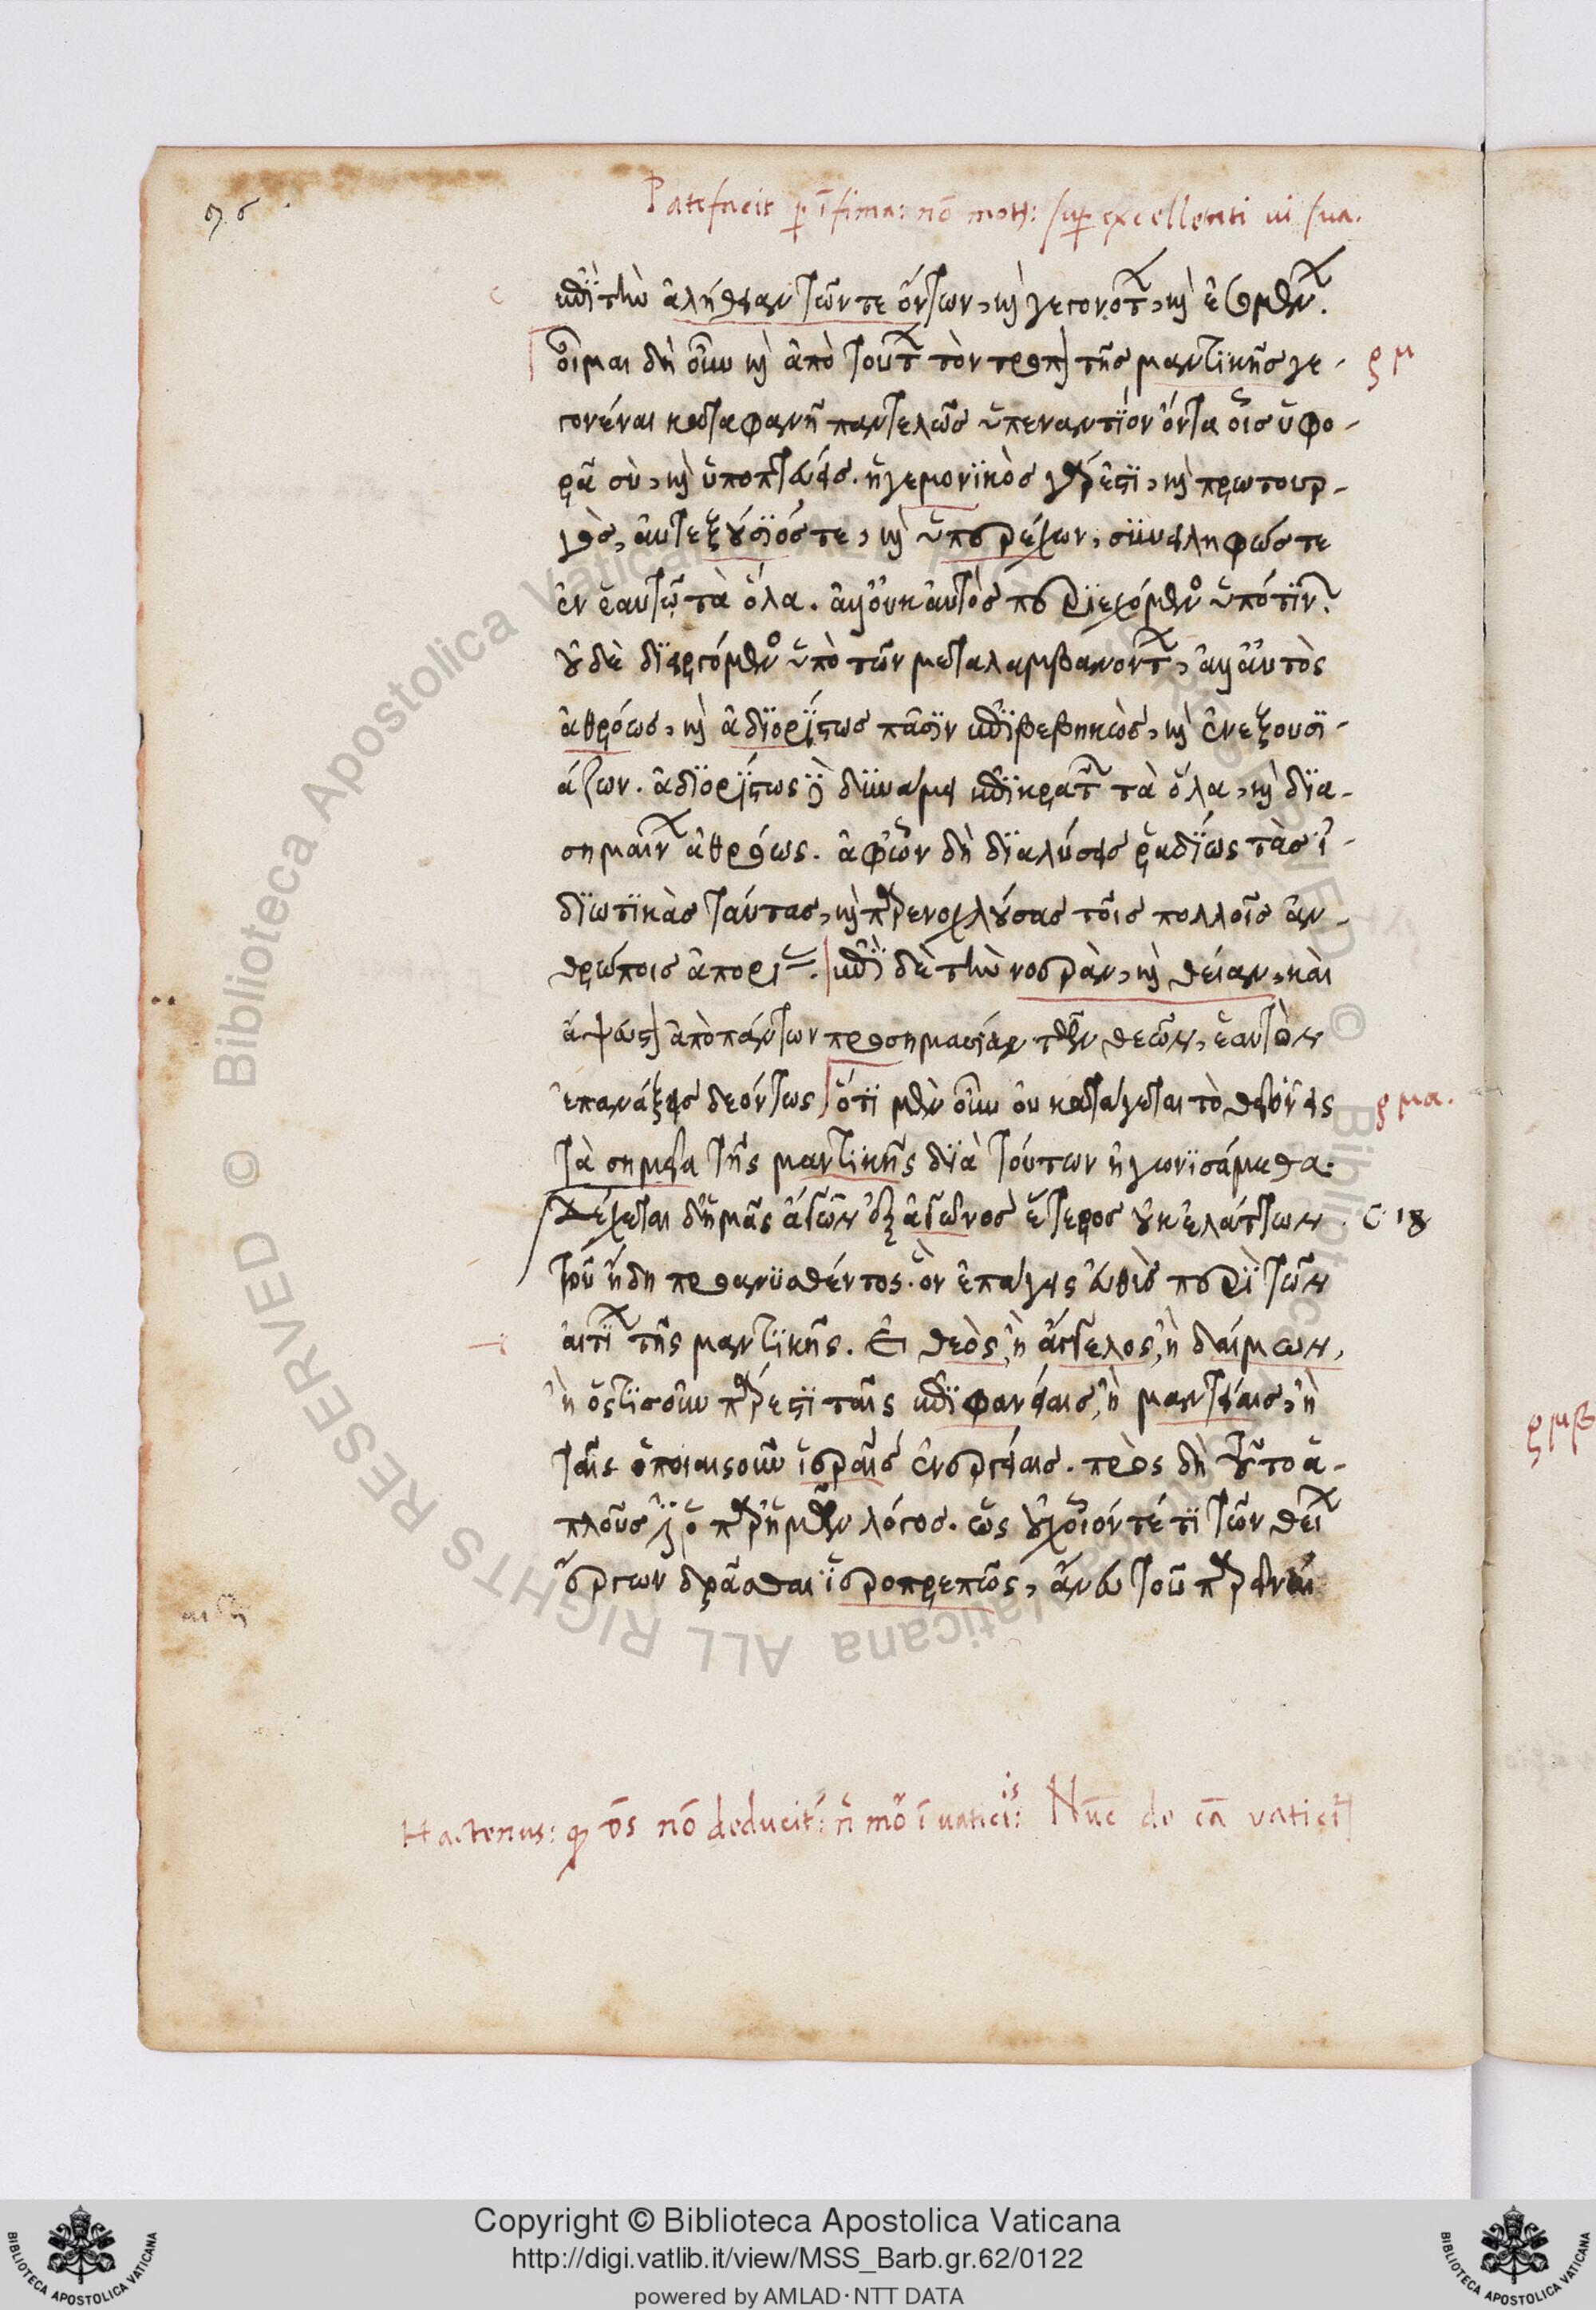 Patefacit p ĩfima: nõ mot: sup excellenti ui sua.
ἐπὶ τὴν ἀλήθειαν τῶν τε ὄντων, καὶ γεγονότων, καὶ ἐσομένων.
οἶμαι δὴ οὖν καὶ ἀπὸ τούτων τὸν τρόπον τῆς μαντικῆς γε-
ρμ
γονέναι καταφανῆ παντελῶς ὑπεναντίον ὄντα οἷς ὑφο-
ρᾶ σὺ, καὶ ὑποπτεύεις. ἡγεμονικὸς γάρ ἐστι, καὶ πρωτουρ-
γὸς, αὐτεξούσιός τε, καὶ ὑπερέχων, συνειληφώς τε
ἐν ἑαυτῷ τὰ ὅλα. ἀλλ' οὐκ αὐτὸς περιεχόμενος ὑπό τινων
οὐδὲ διειργόμενος ὑπὸ τῶν μεταλαμβανόντων, ἀλλ' αὐτὸς
ἀθρόως, καὶ ἀδιορίστως πᾶσιν ἐπιβεβηκὼς, καὶ ἐνεξουσι-
άζων. ἀδιορίστως δὲ δυνάμει ἐπικρατεῖ τὰ ὅλα, καὶ δια-
σημαίνων ἀθρόως. ἀφ' ὧν δὴ διαλύσεις ῥαδίως τὰς ἰ-
διωτικὰς ταύτας, καὶ παρενοχλούσας τοῖς πολλοῖς ἀν-
θρώποις ἀπορίας. ἐπὶ δὲ τὴν νοερὰν, καὶ θείαν, καὶ
ἀψευστον ἀπὸ πάντων προσημασίαν τῶν θεῶν, ἑαυτὸν
ἐπανάξεις δεόντως ὅτι μὲν οὖν οὐ κατάγεται τὸ θεῖον εἰς
ρμα.
τὰ σημεῖα τῆς μαντικῆς διὰ τούτων ἠγωνισάμεθα.
Δέχεται δ' ἡμᾶς ἀγὼν ἐξ ἀγῶνος ἕτερος οὐκ ἐλάττων
C 18
τοῦ ἤδη προανυσθέντος. ὃν ἐπάγεις εὐθὺς περὶ τῶν
αἰτίων τῆς μαντικῆς. Εἰ θεὸς, ἢ ἄγγελος, ἢ δαίμων,
ἢ ὅστισοῦν πάρεστι ταῖς ἐπιφανείαις, ἢ μαντείαις, ἢ
ταῖς ὁποιαισοῦν ἱεραῖς ἐνεργείαις. πρὸς δὴ τοῦτο ἁ-
πλοῦς ὁ παρ' ἡμῶν λόγος. ὡς οὐχ οἷόν τέ τι τῶν θείων
ἔργων δρᾶσθαι ἱεροπρεπῶς, ἄνευ τοῦ παρεῖναι
Hactenus: q ds nõ deducit: ñ mõ ĩ vaticiis: Nũc de cã vaticĩ
Copyright © Biblioteca Apostolica Vaticana
http://digi.vatlib.it/view/MSS_Barb.gr.62/0122
powered by AMLAD·NTT DATA
ρμβ